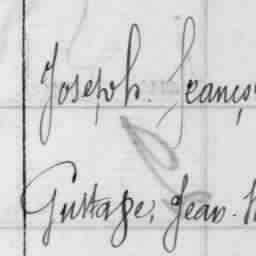 Joseph. Franço
Gustave, Jean.